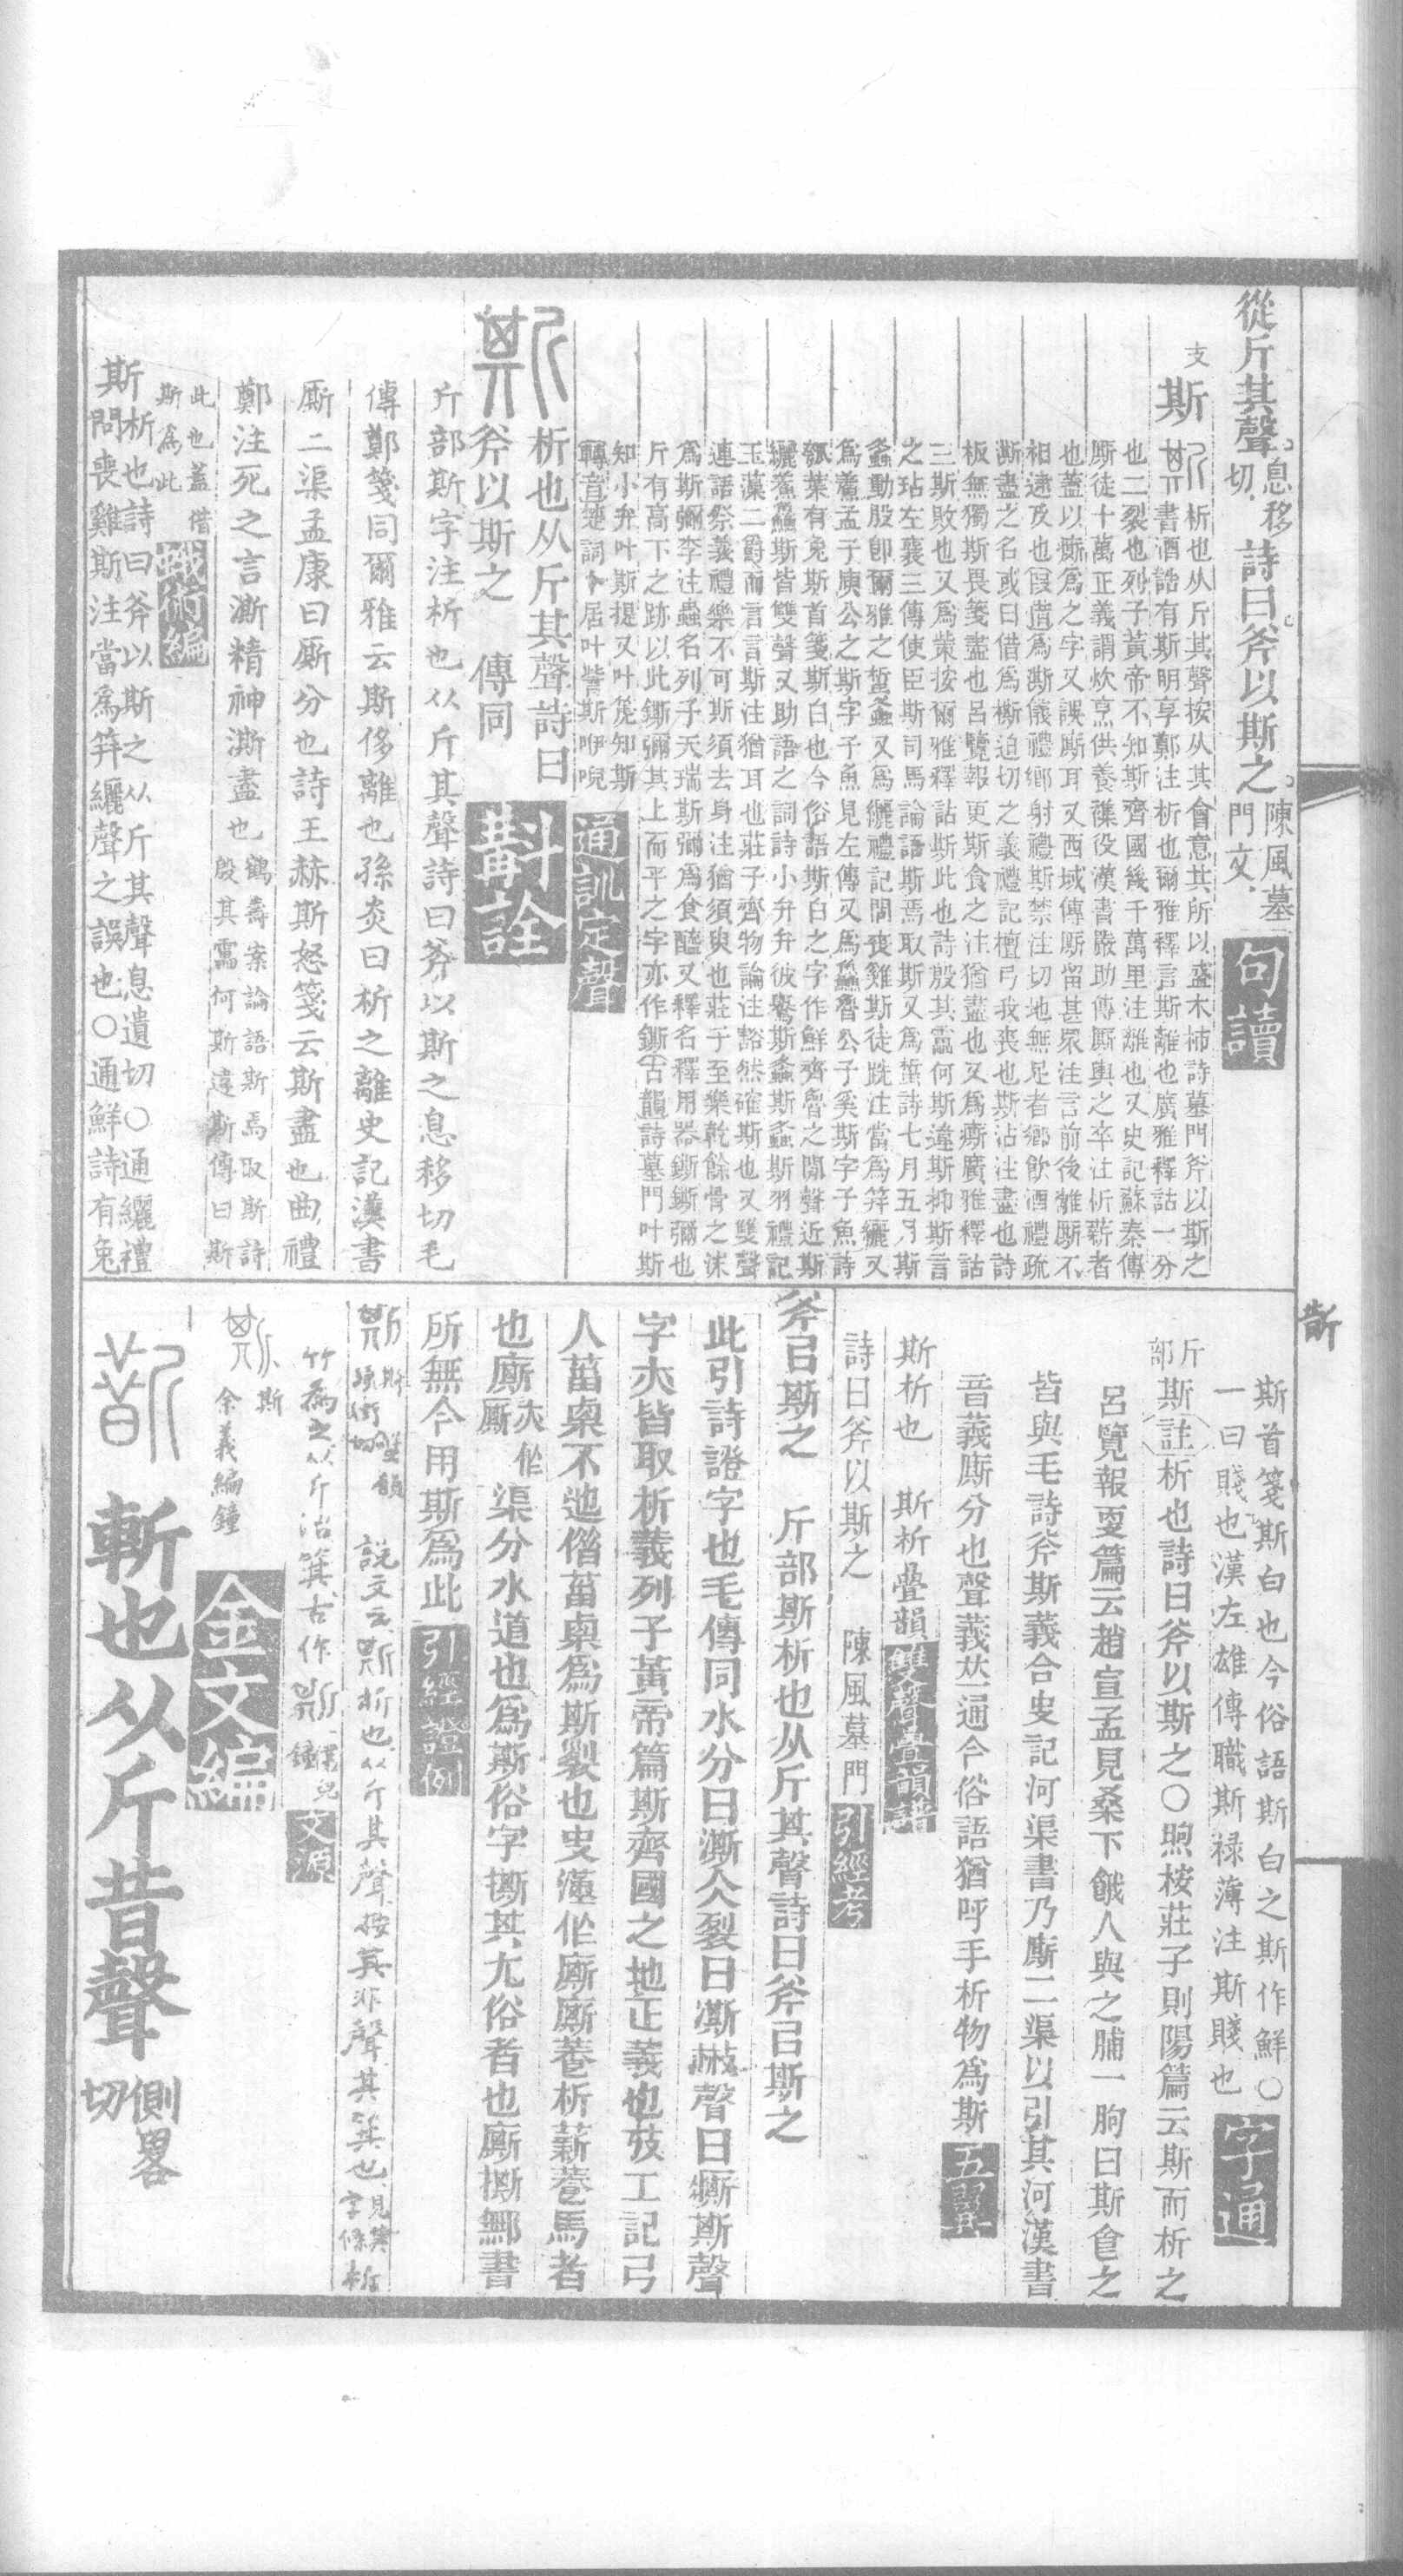 從斤其聲息移切詩曰斧以斯之陳風墓門文句讀
支 斯 析也从斤其聲按从其會意其所以盛木杮詩墓門斧以斯之
書酒誥有斯明享鄭注析也爾雅釋言斯離也廣雅釋詁一分
也二裂也列子黃帝不知斯齊國幾千萬里注離也又史記蘇秦傳
廝徒十萬正義謂炊烹供養雜役漢書嚴助傳廝輿之卒注析薪者
也蓋以廝爲之字又誤廝耳又西域傳廝留甚衆注言前後離廝不
相逮及也假借爲澌儀禮鄉射禮斯禁注切地無足者鄉飲酒禮疏
澌盡之名或曰借爲櫯迫切之義禮記檀弓我喪也斯沾注盡也詩
板無獨斯畏箋盡也呂覽報更斯食之注猶盡也又爲癬廣雅釋詁
三斯敗也又爲策按爾雅釋詁斯此也詩殷其靁何斯違斯抑斯言
之玷左襄三傳使臣斯司馬論語斯焉取斯又爲蜇詩七月五月斯
螽動股卽爾雅之蜤螽又爲纚禮記問喪雞斯徒跣注當爲笄纚又
爲鷹孟子庾公之斯字子魚見左傳又爲鱻魯公子奚斯字子魚詩
瓠葉有兔斯首箋斯白也今俗語斯白之字作鮮齊魯之閒聲近斯
纚鷹鱻斯皆雙聲又助語之詞詩小弁弁彼鸒斯螽斯螽斯羽禮記
玉藻二爵而言言斯注猶耳也莊子齊物論注豁然確斯也又雙聲
連語祭義禮樂不可斯須去身注猶須臾也莊子至樂乾餘骨之沫
爲斯彌李注蟲名列子天瑞斯彌爲食醯又釋名釋用器鐁鐁彌也
斤有高下之跡以此鐁彌其上而平之字亦作鐁古韻詩墓門叶斯
知小弁叶斯提又叶箎知斯
轉音楚詞卜居叶訾斯咿唲 通訓定聲
析也从斤其聲詩曰
斧以斯之 傳同 斠詮
斤部斯字注析也从斤其聲詩曰斧以斯之息移切毛
傳鄭箋同爾雅云斯侈離也孫炎曰析之離史記漢書
廝二渠孟康曰廝分也詩王赫斯怒箋云斯盡也曲禮
鄭注死之言澌精神澌盡也鶴壽案論語斯焉取斯詩殷其靁何斯違斯傳曰斯
此也蓋借斯爲此 蛾術編
斯析也詩曰斧以斯之从斤其聲息遺切○通纚禮
問喪雞斯注當爲笄纚聲之誤也○通鮮詩有兔
斯首箋斯白也今俗語斯白之斯作鮮○
一曰賤也漢左雄傳職斯祿薄注斯賤也 字通
斤部 斯註析也詩曰斧以斯之○煦桉莊子則陽篇云斯而析之
呂覽報更篇云趙宣孟見桑下餓人與之脯一朐曰斯食之
皆與毛詩斧斯義合史記河渠書乃廝二渠以引其河漢書
音義廝分也聲義𠀤通今俗語猶呼手析物爲斯 五翼
斯析也 斯析疊韻 雙聲疊韻譜
詩曰斧以斯之 陳風墓門 引經考
斧㠯斯之 斤部斯析也从斤其聲詩曰斧㠯斯之
此引詩證字也毛傳同水分曰澌仌裂曰凘㪔聲曰㾷斯聲
字夶皆取析義列子黃帝篇斯齊國之地正義也攷工記弓
人菑㮚不迆偕菑㮚爲斯裂也史漢作廝廝養析薪養馬者
也廝夶作厮渠分水道也爲斯俗字撕其尤俗者也廝撕鄦書
所無今用斯爲此 引經證例
說文云斯析也从斤其聲按其非聲其箕也見其字條析
竹爲之从斤治箕古作 僕兒鐘 文源
斯 余義編鐘 金文編
斮 斬也从斤昔聲側畧切
斮